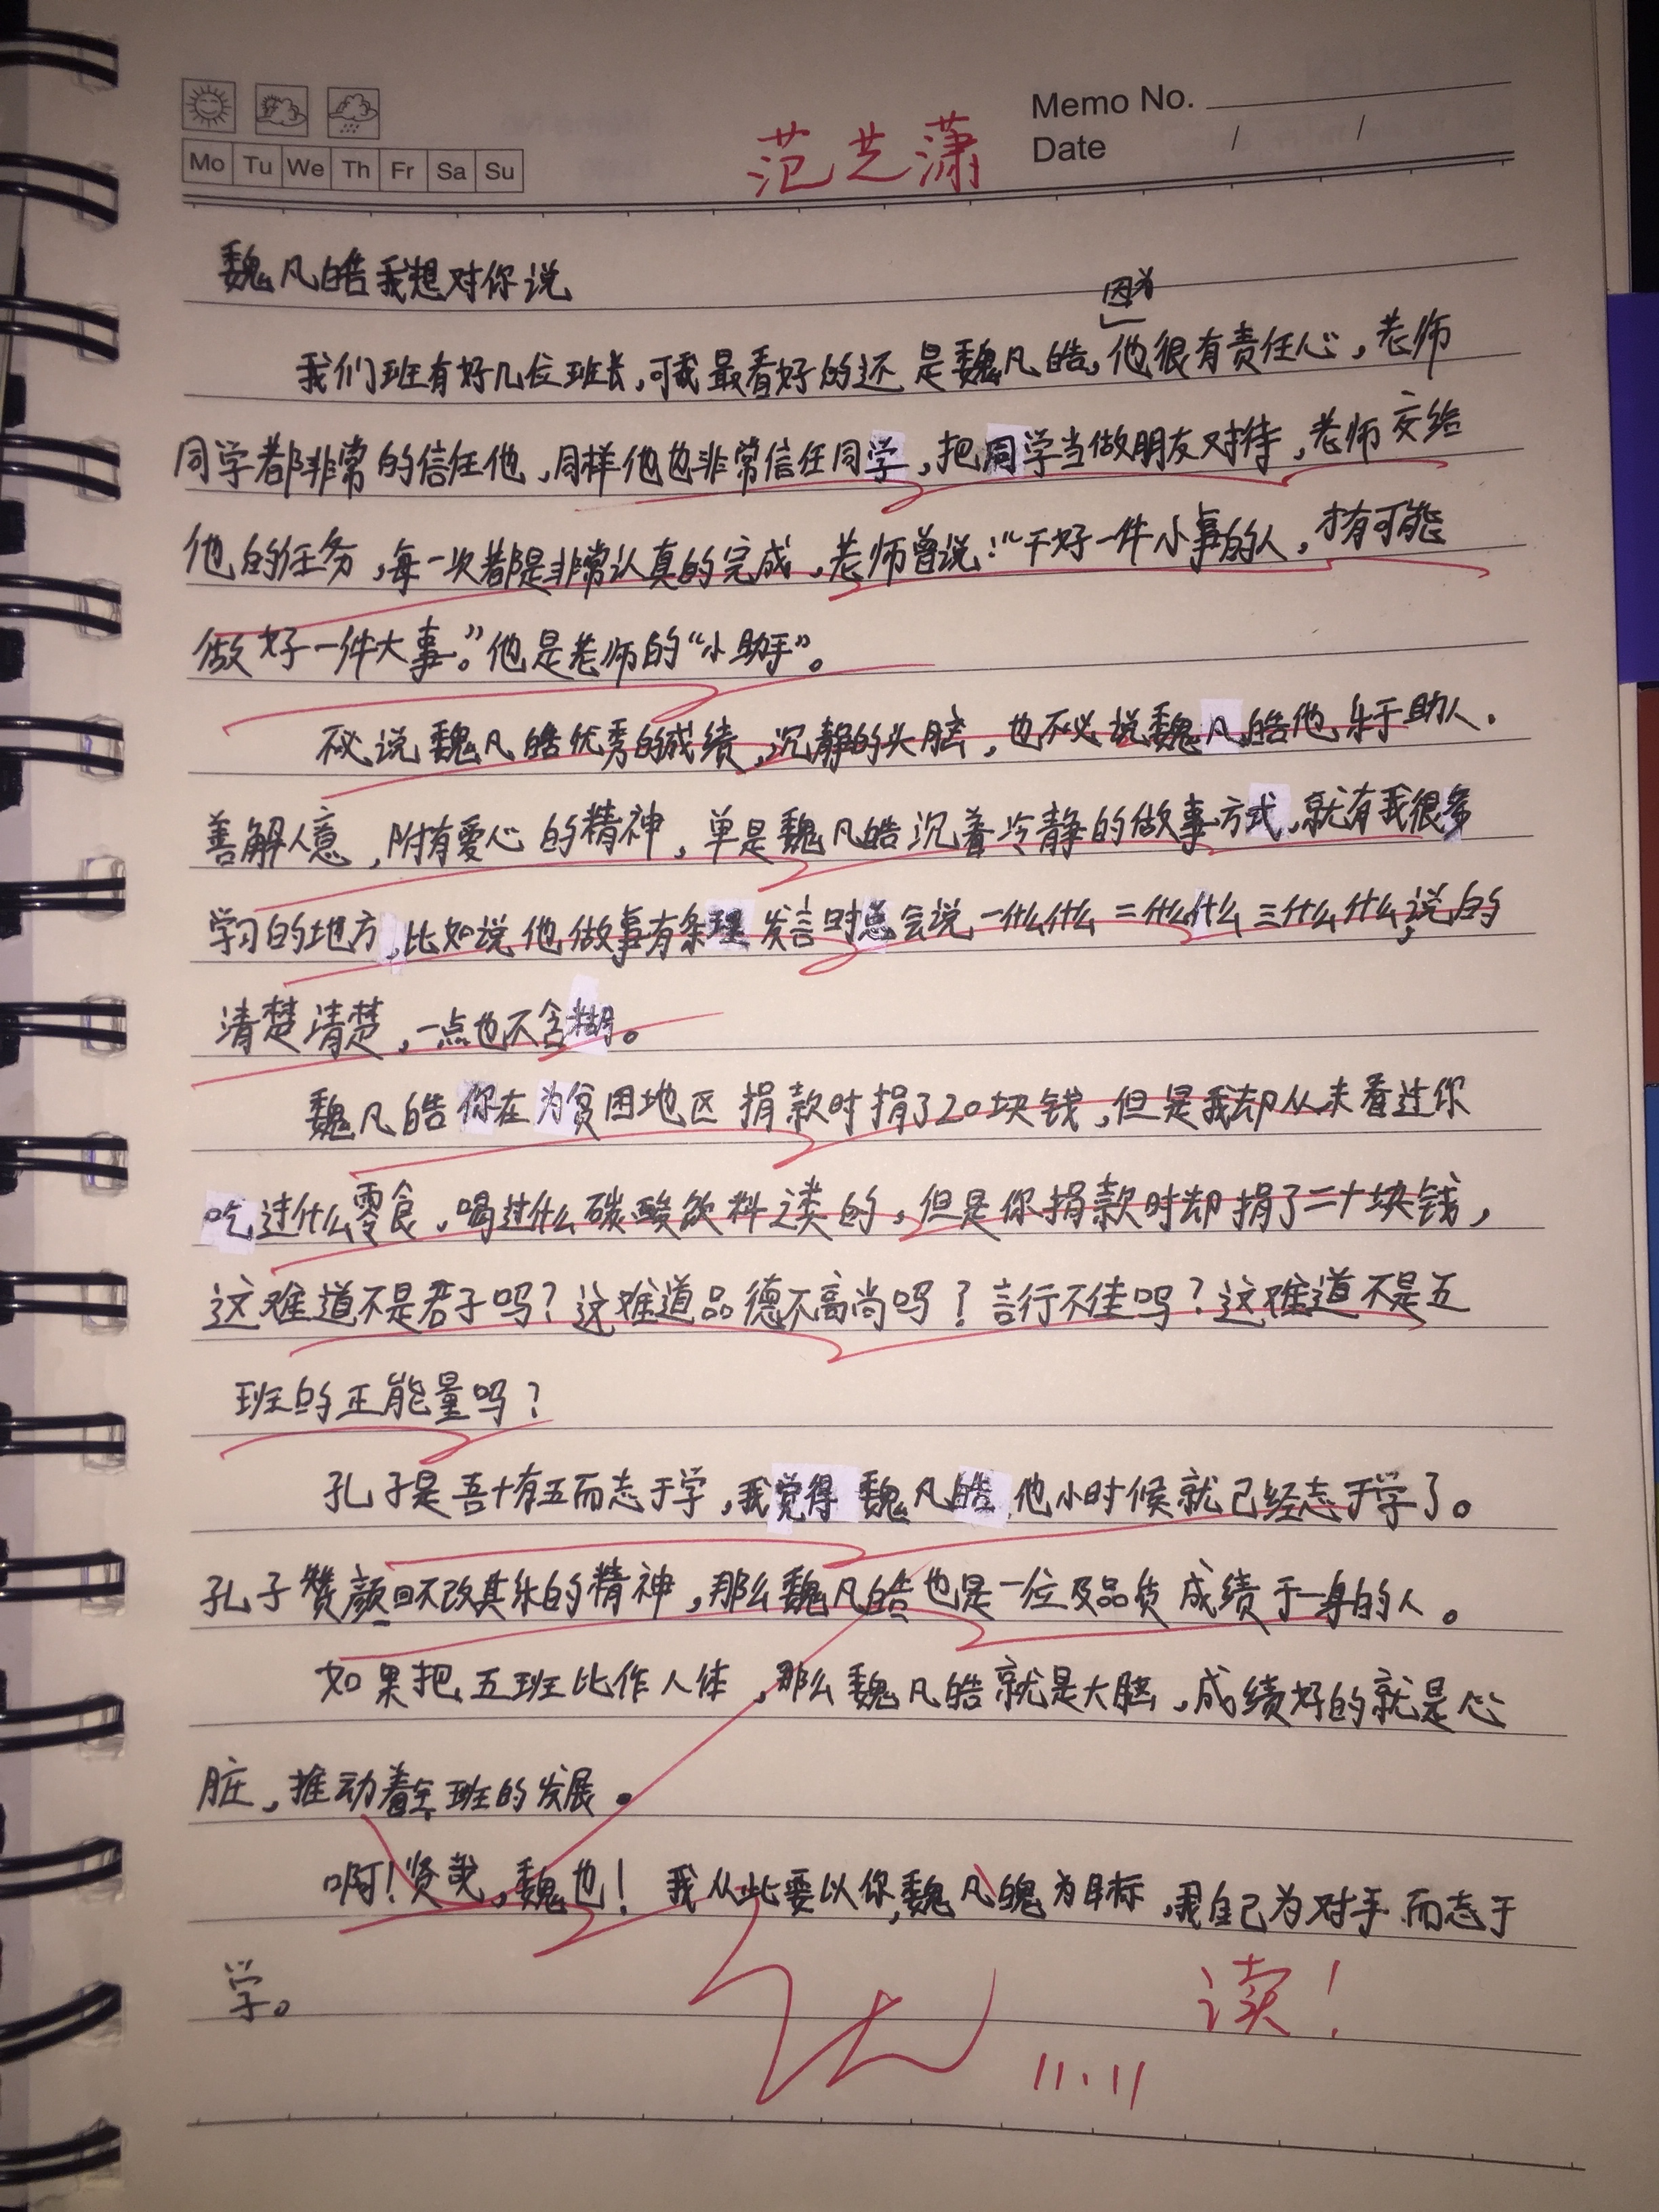 Memo No.
Mo Tu We Th Fr Sa Su
范芝潇
Date / /
魏凡皓我想对你说
因为
我们班有好几位班长,可我最看好的还是魏凡皓,他很有责任心,老师
同学都非常的信任他,同样他也非常信任同学,把同学当做朋友对待,老师交给
他的任务,每一次都是非常认真的完成,老师曾说:“干好一件小事的人,才有可能
做好一件大事。”他是老师的“小助手”。
不必说魏凡皓优秀的成绩,沉静的头脑,也不必说魏凡皓他乐于助人.
善解人意,附有爱心的精神,单是魏凡皓沉着冷静的做事方式,就有我很多
学习的地方,比如说他做事有条理发言时总会说一什么什么二什么什么三什么什么,说的
清楚清楚,一点也不含糊。
魏凡皓你在为贫困地区捐款时捐了20块钱,但是我却从未看过你
吃过什么零食,喝过什么碳酸饮料之类的,但是你捐款时却捐了二十块钱,
这难道不是君子吗?这难道品德不高尚吗?言行不佳吗?这难道不是五
班的正能量吗?
孔子是吾十有五而志于学,我觉得魏凡皓他小时候就已经志于学了。
孔子赞颜回不改其乐的精神,那么魏凡皓也是一位及品质成绩于一身的人。
如果把五班比作人体,那么魏凡皓就是大脑,成绩好的就是心
脏,推动着五班的发展.
啊!贤哉,魏也!我从此要以你,魏凡魄为目标,我自己为对手而志于
学。
读!
11.11